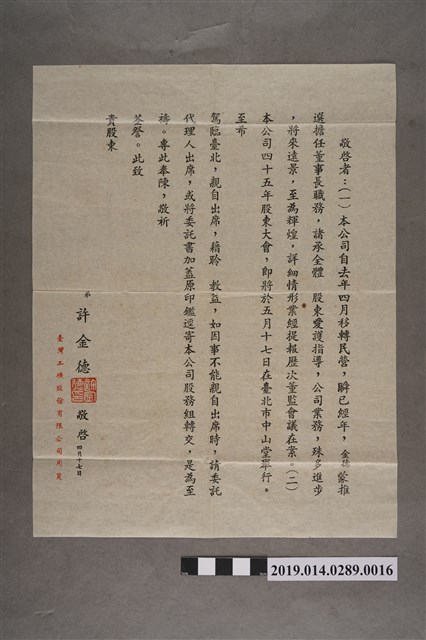 敬啓者：（一）本公司自去年四月移轉民營，瞬已經年，金德蒙推
選擔任董事長職務，諸承全體　股東愛護指導，公司業務，殊多進步
，將來遠景，至為輝煌，詳細情形業經提報歷次董監會議在案。（二）
本公司四十五年股東大會，即將於五月十七日在臺北市中山堂舉行。
至希
駕臨臺北，親自出席，藉聆　教益，如因事不能親自出席時，請委託
代理人出席，或將委託書加蓋原印鑑逕寄本公司股務組轉交，是為至
禱。專此奉陳，敬祈
荃詧。此致
貴股東
弟　許金德　敬啓　四月十七日
臺灣工礦股份有限公司用箋
2019.014.0289.0016